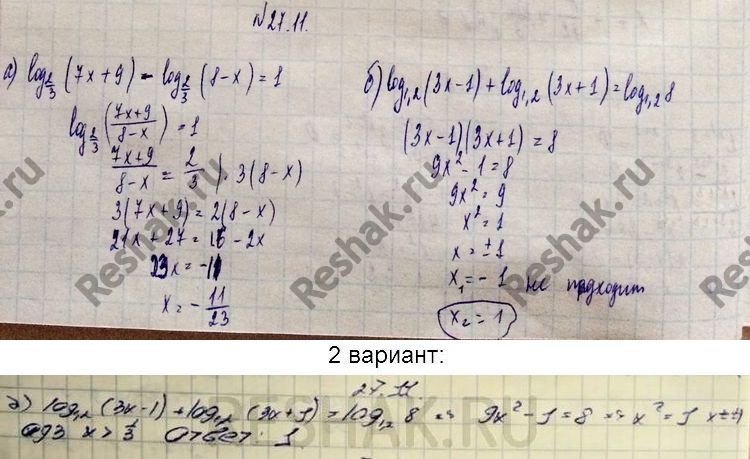 №27.11.
а) log_{2/3} (7x+9) - log_{2/3} (8-x) = 1
log_{2/3} (\frac{7x+9}{8-x}) = 1
\frac{7x+9}{8-x} = \frac{2}{3} | · 3(8-x)
3(7x+9) = 2(8-x)
21x + 27 = 16 - 2x
23x = -11
x = -\frac{11}{23}
б) log_{1,2} (3x-1) + log_{1,2} (3x+1) = log_{1,2} 8
(3x-1)(3x+1) = 8
9x² - 1 = 8
9x² = 9
x² = 1
x = ±1
x₁ = -1 не подходит
x₂ = 1
2 вариант:
27.11.
log_{1,2} (3x-1) + log_{1,2} (3x+1) = log_{1,2} 8 => 9x² - 1 = 8 => x² = 1 x = ±1
одз x > \frac{1}{3} Ответ: 1.
Reshak.ru
RESHAK.RU